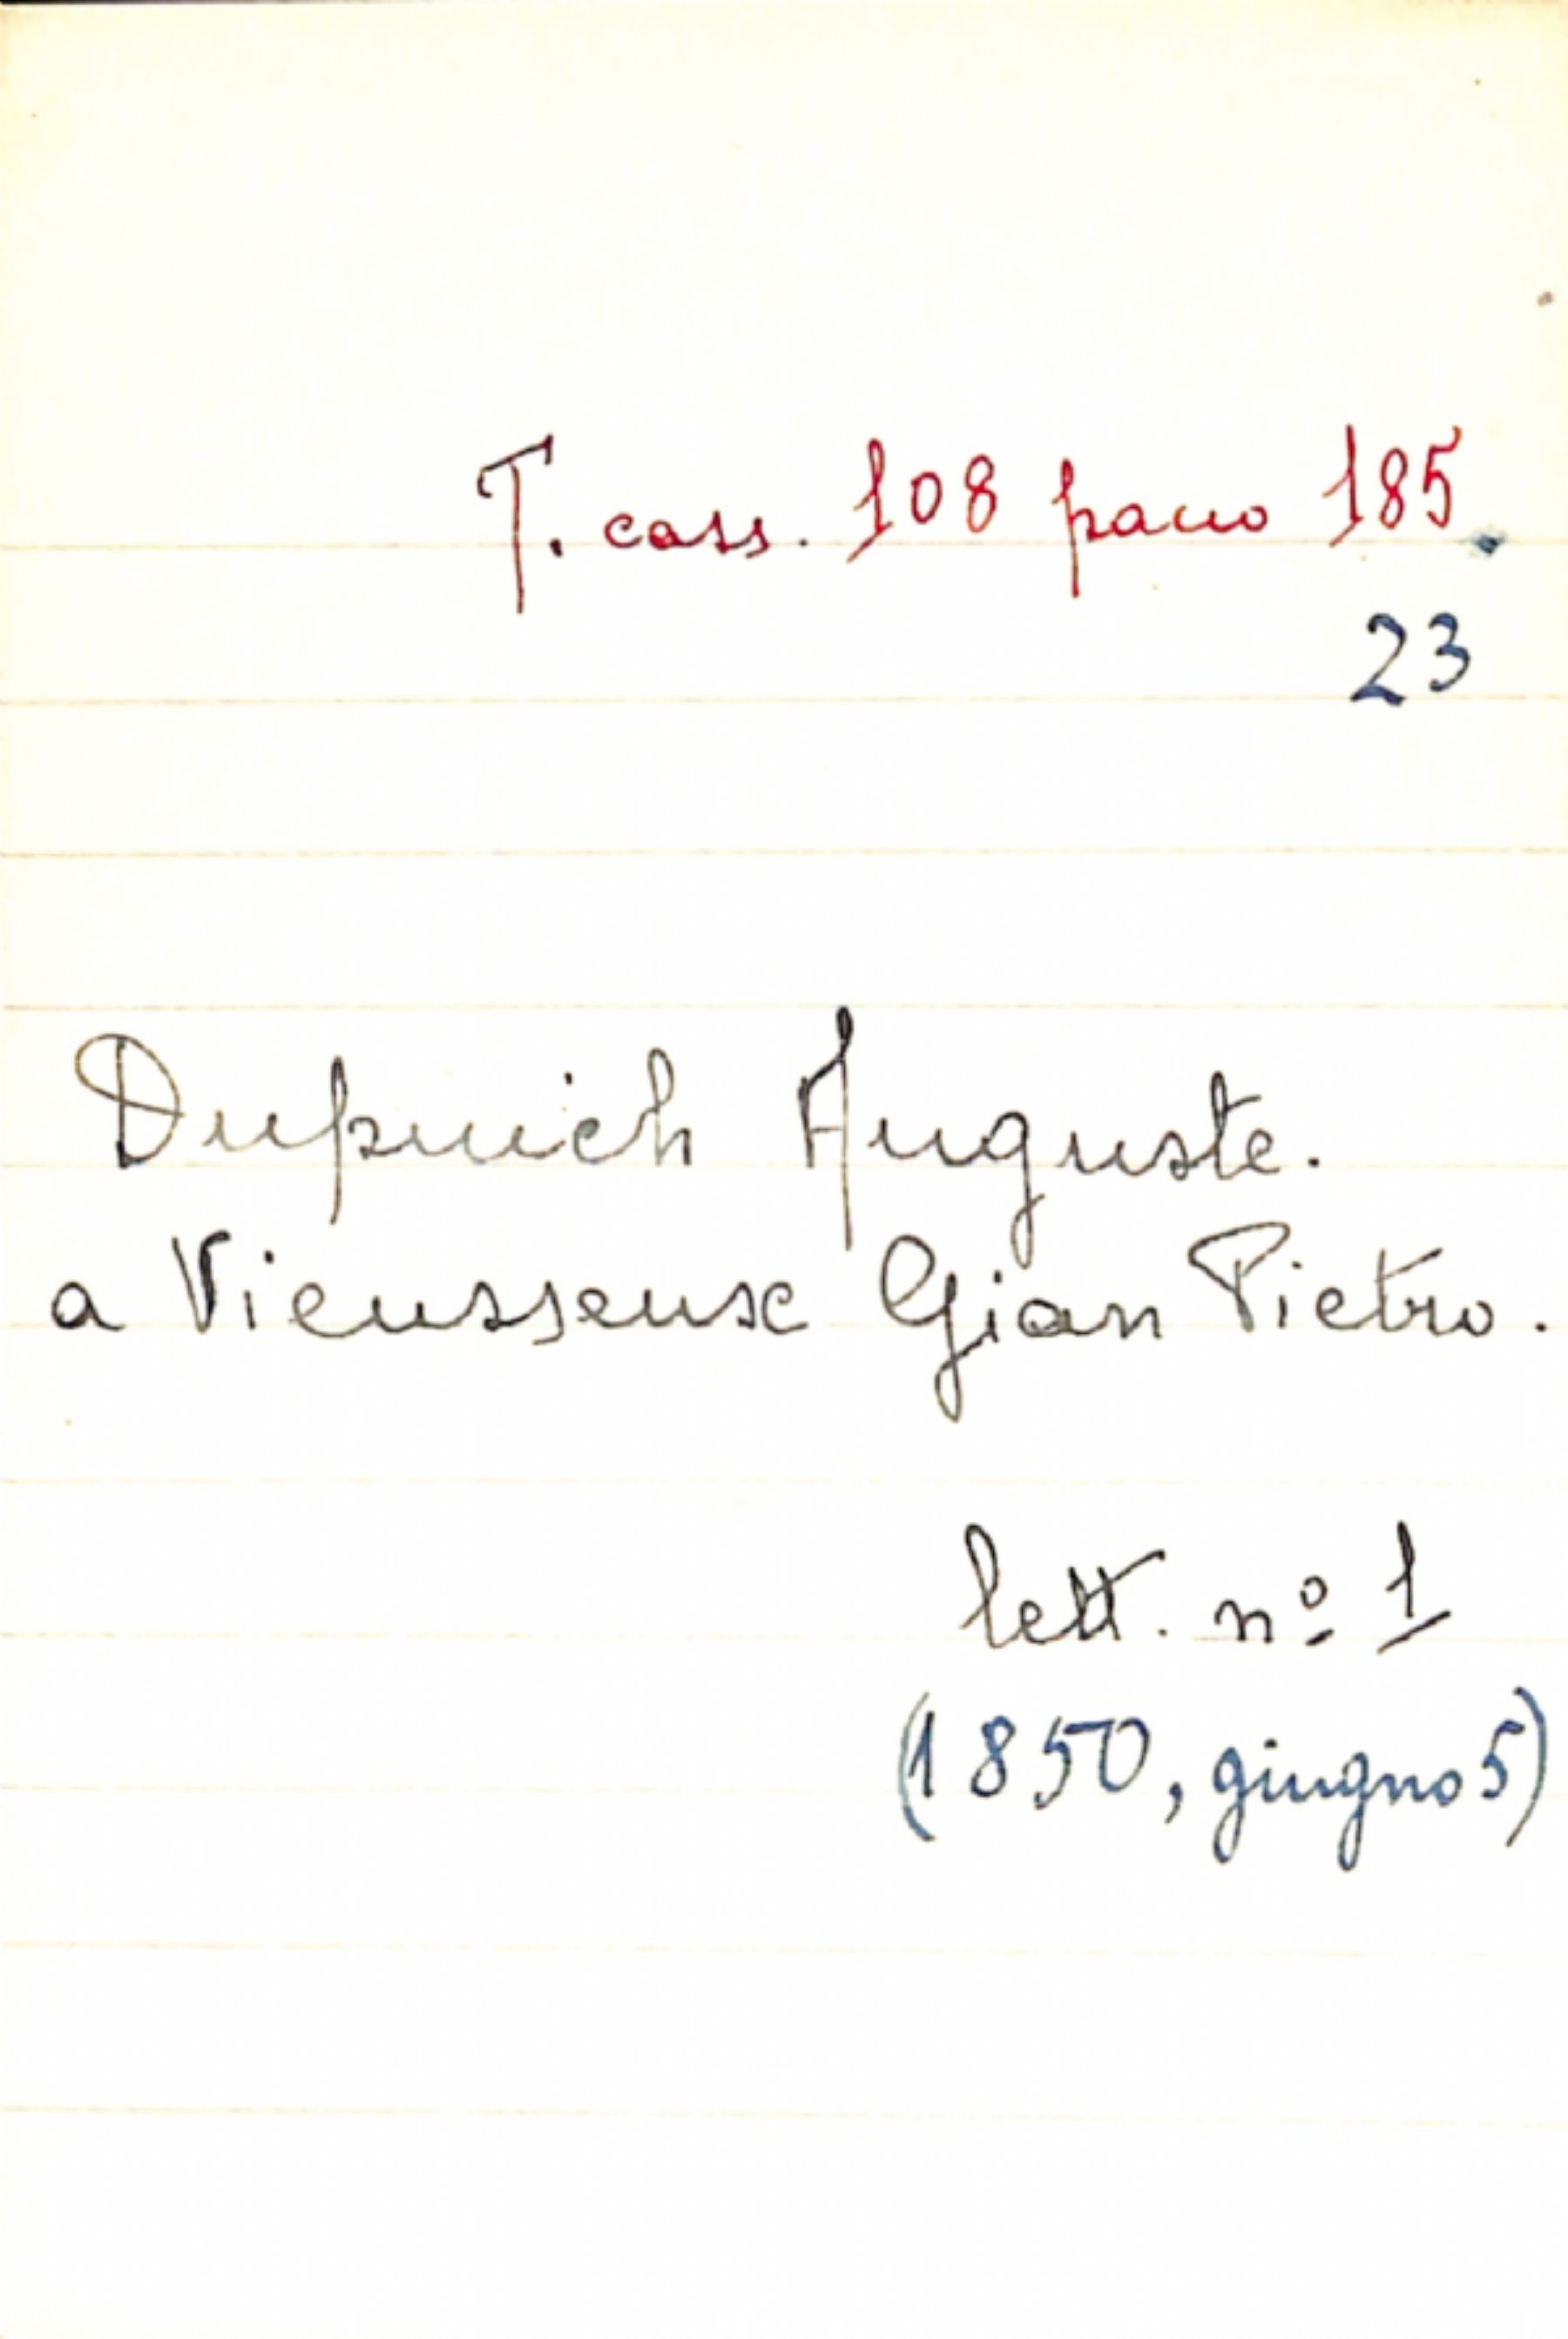 T. cass. 108 pacco 185.
23
Dupuich Auguste.
a Vieusseux Gian Pietro.
lett. nº 1
(1850, giugno 5)